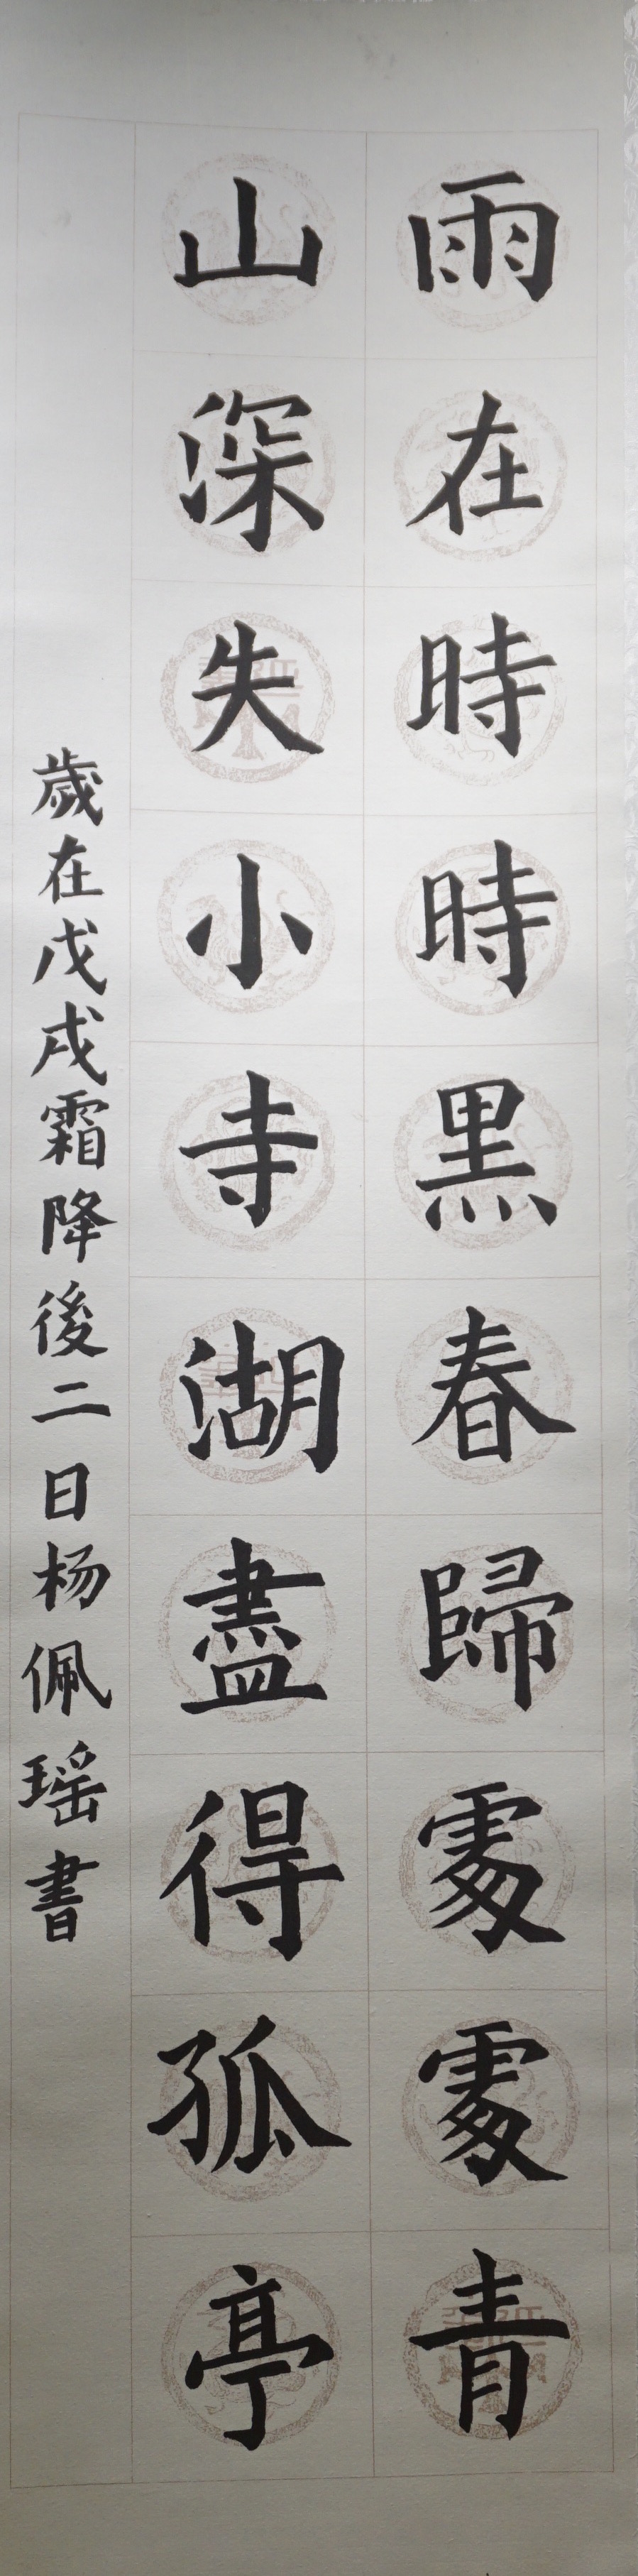 雨在時時黑春歸處處青
山深失小寺湖盡得孤亭
歲在戊戌霜降後二日杨佩瑶書